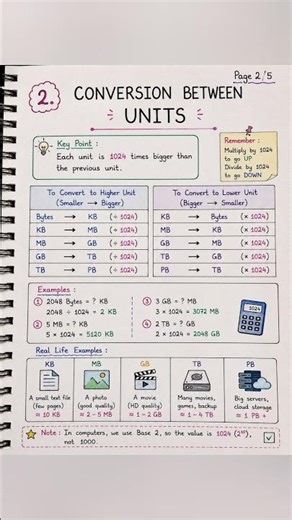 Page 2/5
2. CONVERSION BETWEEN
UNITS
Key Point :
Each unit is 1024 times bigger than
the previous unit.
Remember :
Multiply by 1024
to go UP
Divide by 1024
to go DOWN
To Convert to Higher Unit
(Smaller → Bigger)
Bytes → KB (÷ 1024)
KB → MB (÷ 1024)
MB → GB (÷ 1024)
GB → TB (÷ 1024)
TB → PB (÷ 1024)
To Convert to Lower Unit
(Bigger → Smaller)
KB → Bytes (× 1024)
MB → KB (× 1024)
GB → MB (× 1024)
TB → GB (× 1024)
PB → TB (× 1024)
Examples :
1 2048 Bytes = ? KB
2048 ÷ 1024 = 2 KB
2 5 MB = ? KB
5 × 1024 = 5120 KB
3 3 GB = ? MB
3 × 1024 = 3072 MB
4 2 TB = ? GB
2 × 1024 = 2048 GB
1024
Real Life Examples :
KB
A small text file
(few pages)
≈ 10 KB
MB
A photo
(good quality)
≈ 2 - 5 MB
GB
A movie
(HD quality)
≈ 1 - 2 GB
TB
Many movies,
games, backup
≈ 1 - 4 TB
PB
Big servers,
cloud storage
≈ 1 PB +
Note : In computers, we use Base 2, so the value is 1024 (2¹⁰),
not 1000.